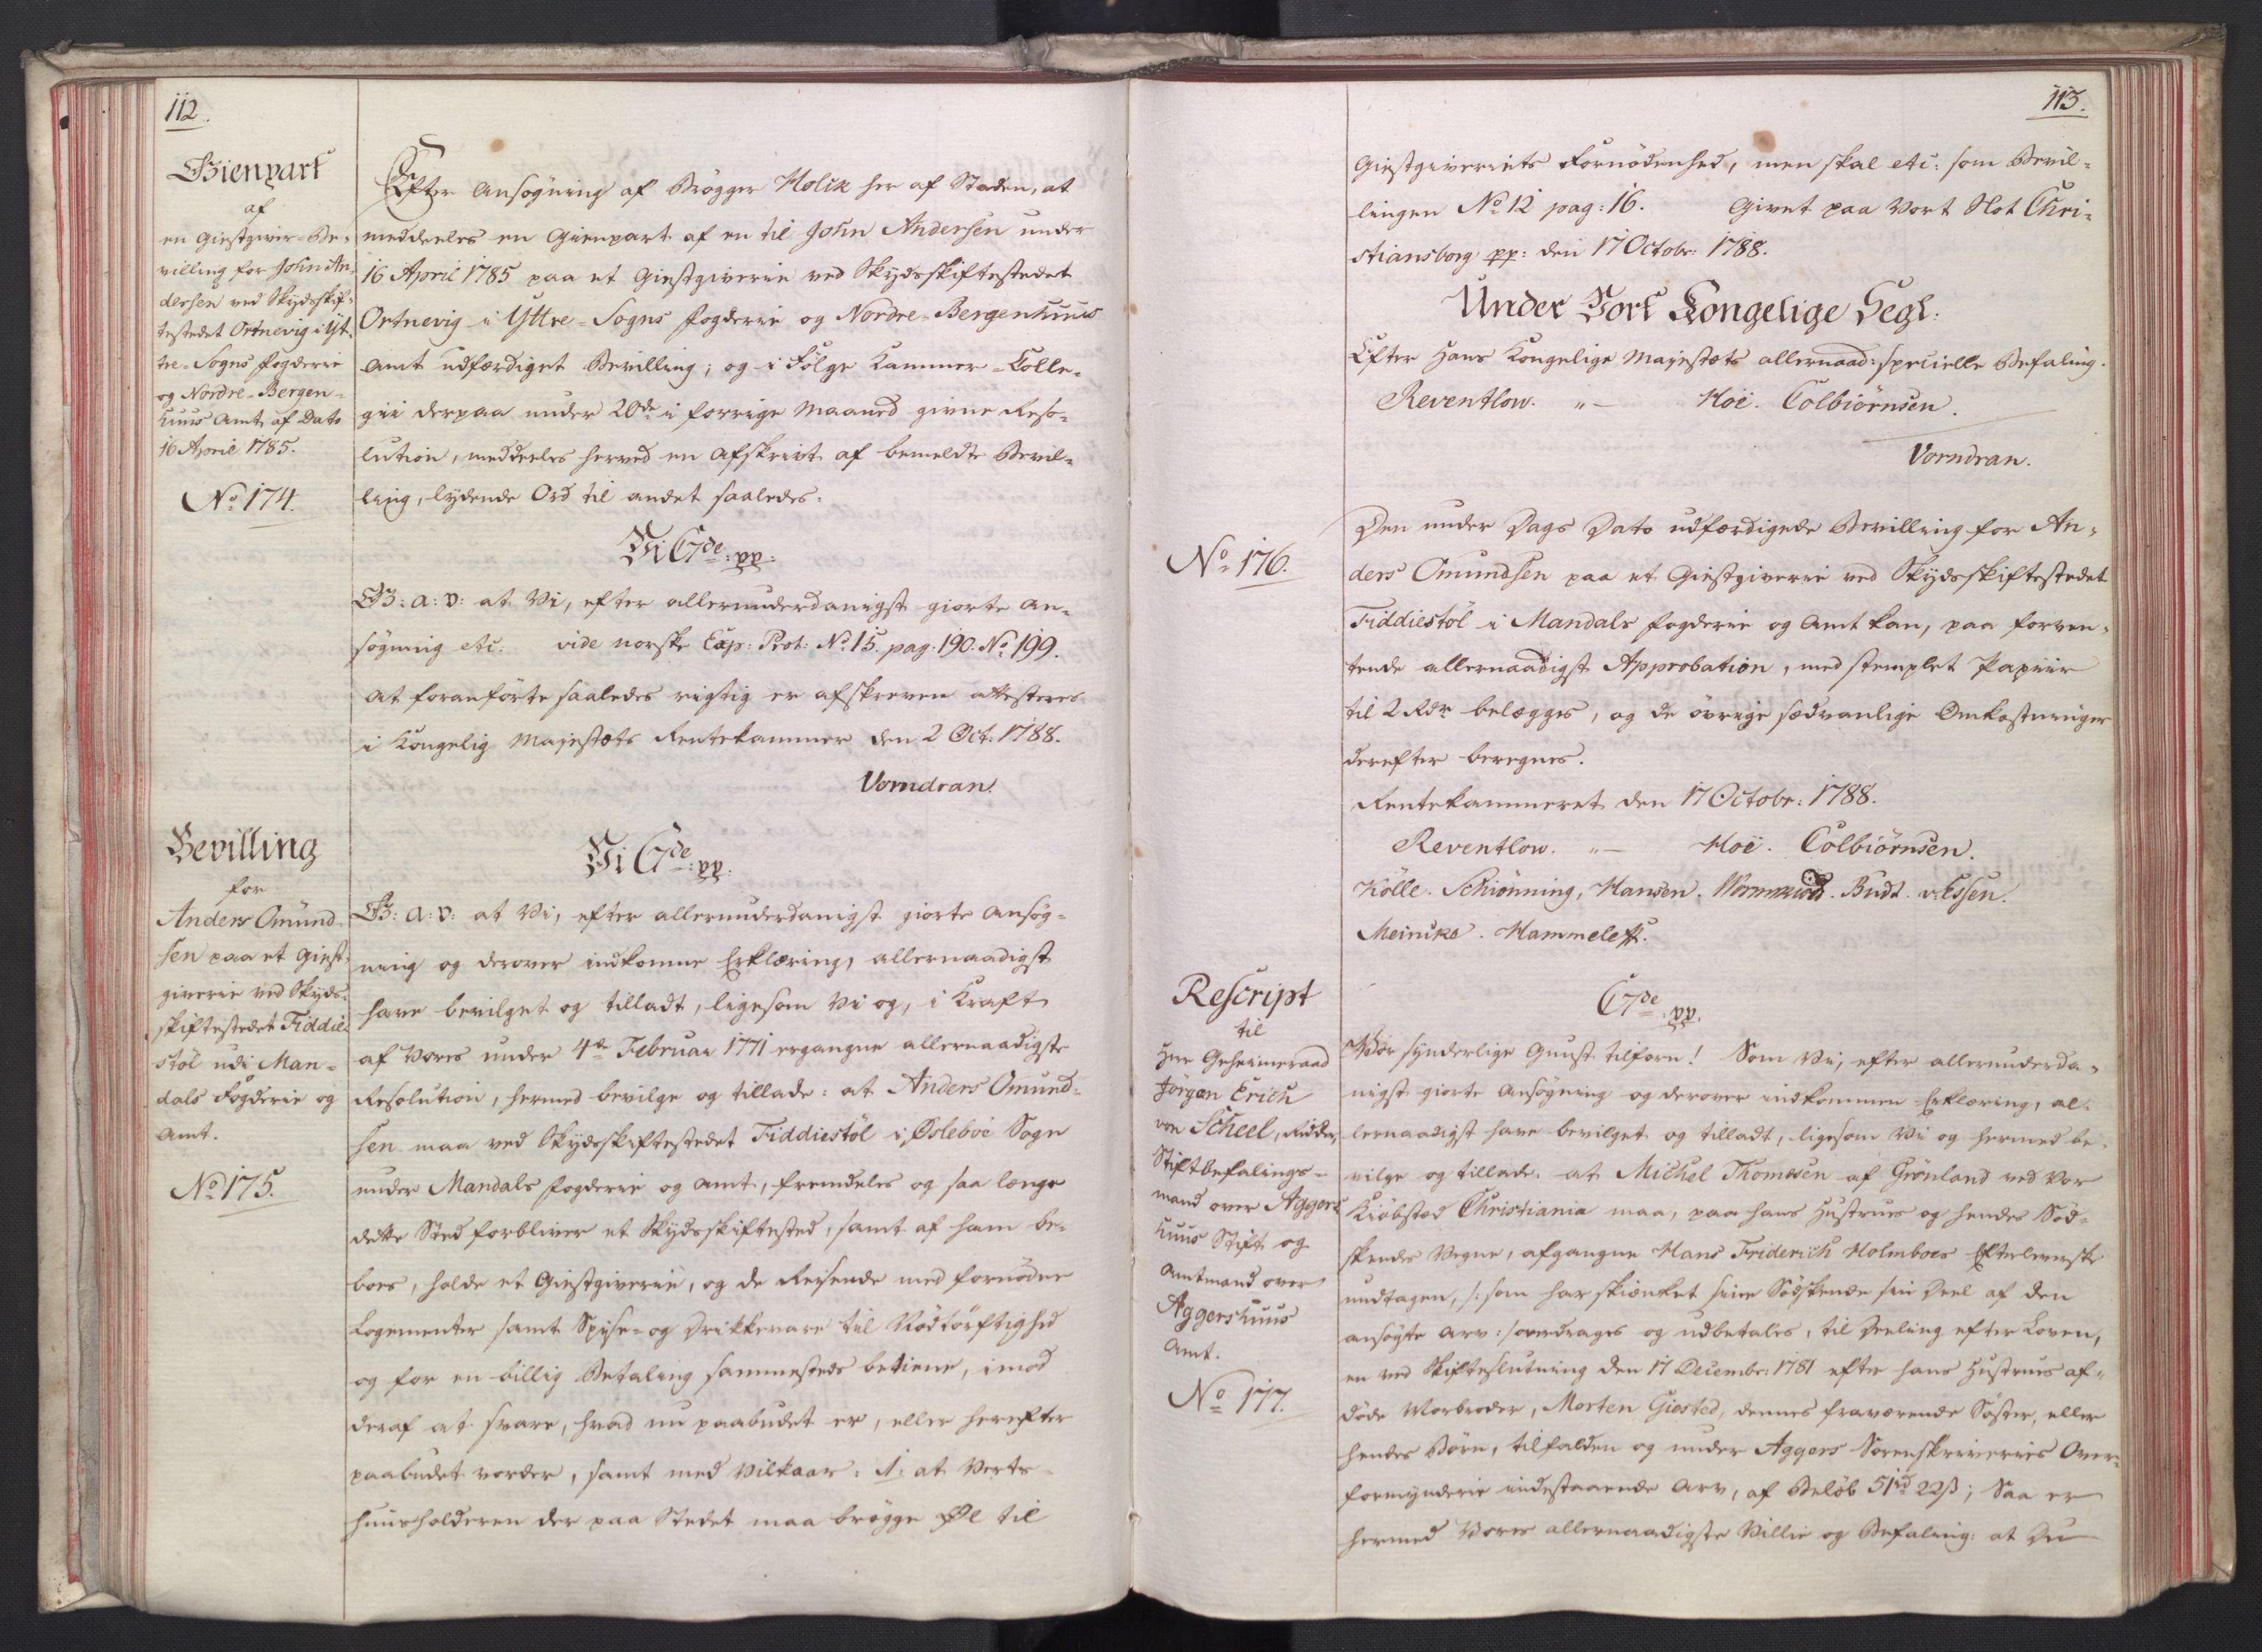 112.
Gienpart
af
en Giestgiver-Be-
villing for John An-
dersen ved Skydsskif-
testedet Ortnevig i Yt-
tre-Sogns Fogderie
og Nordre-Bergen-
huus Amt af Dato
16 April 1785.
No 174.
Efter Ansøgning af Brygger Holck her af Staden, at
meddeeles en Gienpart af en til John Andersen under
16 April 1785 paa et Giestgiverie ved Skydsskiftestedet
Ortnevig i Yttre-Sogns Fogderie og Nordre-Bergenhuus
Amt udfærdiget Bevilling; og i Følge Kammer-Colle-
gii derpaa under 20de i forrige Maaned givne Reso-
lution, meddeeles herved en Afskrivt af bemeldte Bevil-
ling, lydende Ord til andet saaledes:
Vi C7de: pp:
G: a: v: at Vi, efter allerunderdanigst giorte An-
søgning etc: vide norske Exp: Prot: No 15. pag: 190. No 199.
At foranførte saaledes rigtig er afskreven attesteres
i Kongelig Majestæts Rentekammer den 2 Oct: 1788.
Vorndran.
Bevilling
for
Anders Omund-
sen paa et Giest-
giverie ved Skyds-
skiftestedet Fiddie-
støl udi Man-
dals Fogderie og
Amt.
No 175.
Vi C7de: pp:
G: a: v: at Vi, efter allerunderdanigst giorte Ansøg-
ning og derover indkomne Erklæring, allernaadigst
have bevilget og tilladt, ligesom Vi og, i Kraft
af Vores under 4de Februar 1771 ergangne allernaadigste
Resolution, hermed bevilge og tillade: at Anders Omund-
sen maa ved Skydsskiftestedet Fiddiestøl i Øsleboe Sogn
under Mandals Fogderie og Amt, fremdeles og saa længe
dette Sted forbliver et Skydsskiftested, samt af ham be-
boes, holde et Giestgiverie, og de Reisende med fornødne
Logementer samt Spise- og Drikkevare til Nødtørftighed
og for en billig Betaling sammesteds betiene, imod
deraf at svare, hvad nu paabudet er, eller herefter
paabudet vorder, samt med Vilkaar: 1: at Verts-
huusholderen der paa Stedet maa brygge Øl til
113.
Giestgiveriets Fornødenhed, men skal etc: som Bevil-
lingen No 12 pag: 16. Givet paa Vort Slot Chri-
stiansborg pp: den 17 Octobr: 1788.
Under Vort Kongelige Segl.
Efter Hans Kongelige Majestæts allernaad: specielle Befaling.
Reventlow. „— Hoë. Colbiørnsen.
Vorndran.
No 176.
Den under Dags Dato udfærdigede Bevilling for An-
ders Omundsen paa et Giestgiverie ved Skydsskiftestedet
Fiddiestøl i Mandals Fogderie og Amt kan, paa forven-
tende allernaadigst Approbation, med stemplet Papiir
til 2 Rdr belægges, og de øvrige sædvanlige Omkostninger
derefter beregnes.
Rentekammeret den 17 Octobr: 1788.
Reventlow. „— Hoë. Colbiørnsen.
Kölle. Schiønning, Hansen. Wormskiold. Budt. v. Essen.
Meincke. Hammeleff.
Rescript
til
Herr Geheimeraad
Jørgen Erich
von Scheel, Ridder,
Stiftbefalings-
mand over Aggers-
huus Stift og
Amtmand over
Aggershuus
Amt.
No 177.
C7de: pp.
Vor synderlige Gunst tilforn! Som Vi, efter allerunderda-
nigst giorte Ansøgning og derover indkommen Erklæring, al-
lernaadigst have bevilget og tilladt, ligesom Vi og hermed be-
vilge og tillade: at Michel Thomæsen af Grønland ved Vor
Kiøbstad Christiania maa, paa hans Hustrues og hendes Sød-
skendes Vegne, afgangne Hans Friderich Holmboes Efterleverske
undtagen, /: som har skiænket siine Sødskende sin Deel af den
ansøgte Arv :/ overdrages og udbetales, til Deeling efter Loven,
en ved Skifteslutning den 17 Decembr: 1781 efter hans Hustrues af-
døde Morbroder, Morten Giested, dennes fraværende Søster, eller
hendes Børn, tilfalden og under Aggers Sorenskriveries Over-
formynderie indestaaende Arv, af Beløb 51 rd 22 ß; Saa er
hermed Vores allernaadigste Villie og Befaling: at Du